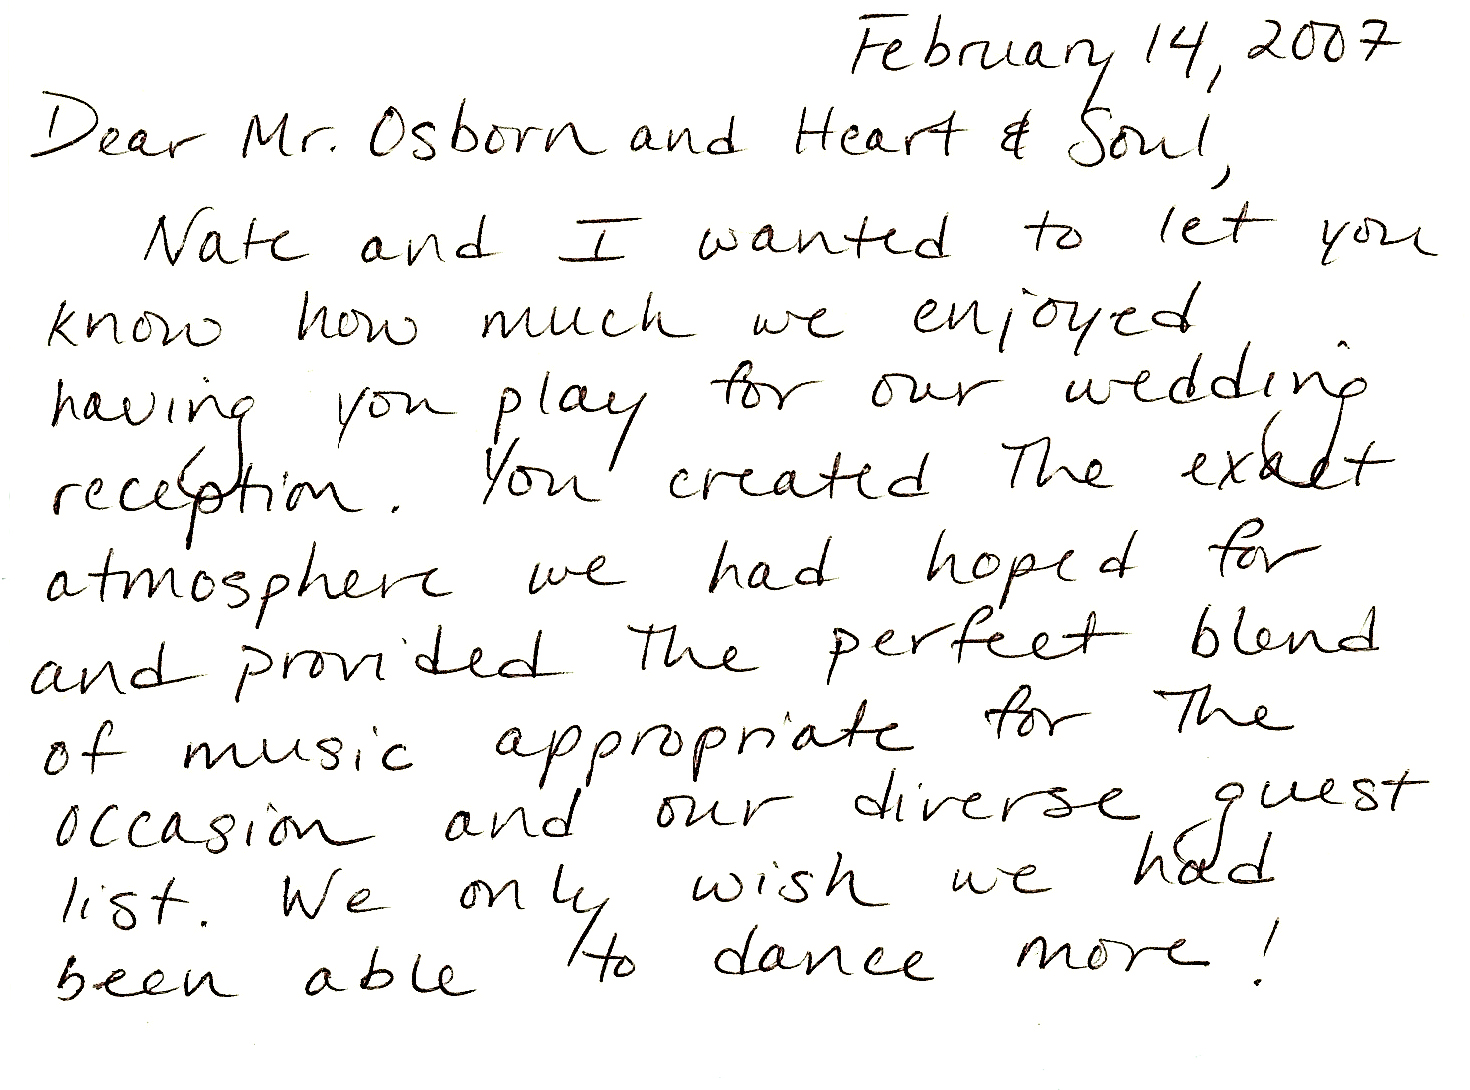 February 14, 2007
Dear Mr. Osborn and Heart & Soul,
Nate and I wanted to let you
know how much we enjoyed
having you play for our wedding
reception. You created the exact
atmosphere we had hoped for
and provided the perfect blend
of music appropriate for the
occasion and our diverse guest
list. We only wish we had
been able to dance more!